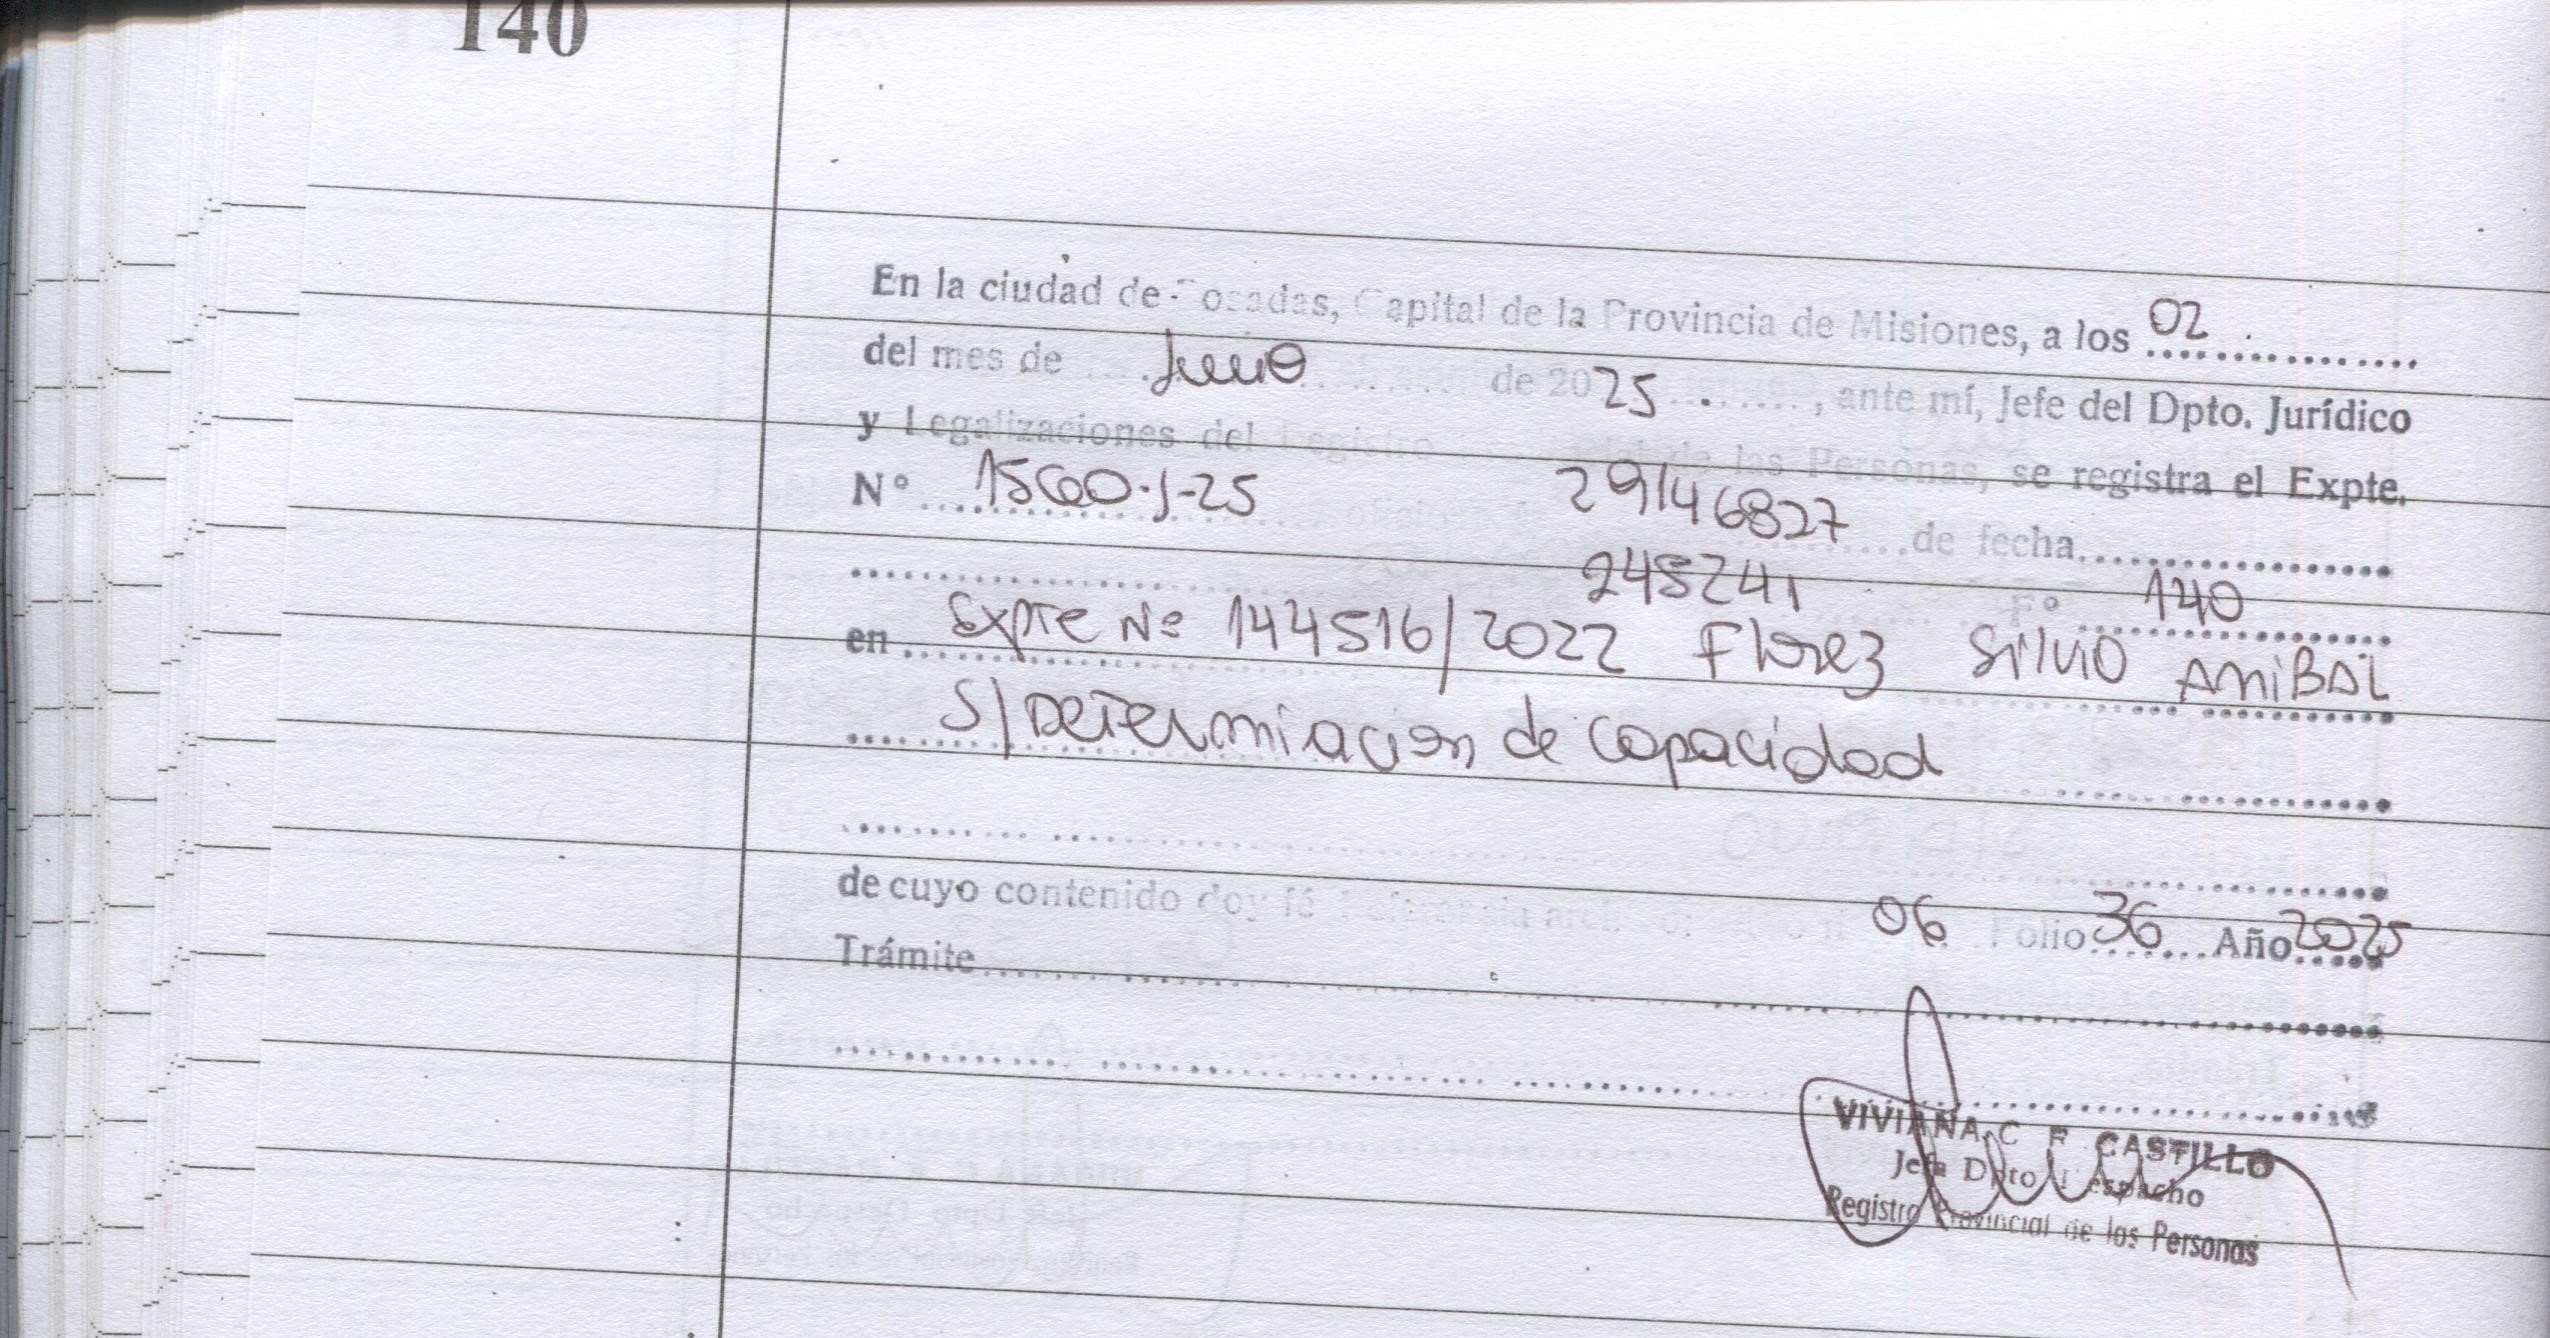 140
En la ciudad de Posadas, Capital de la Provincia de Misiones, a los 02
del mes de Junio de 2025, ante mí, Jefe del Dpto. Jurídico
y Legalizaciones del Registro de las Personas, se registra el Expte.
Nº 1560-J-25 oficio 29146827 de fecha
245241 Fº 140
en Expte Nº 144516/2022 Florez Silvio Anibal
S/ Determiacion de capacidad
de cuyo contenido doy fé 06 Folio 36 Año 2025
Trámite
VIVIANA C F CASTILLO
Jefa Dpto Despacho
Registro Provincial de las Personas